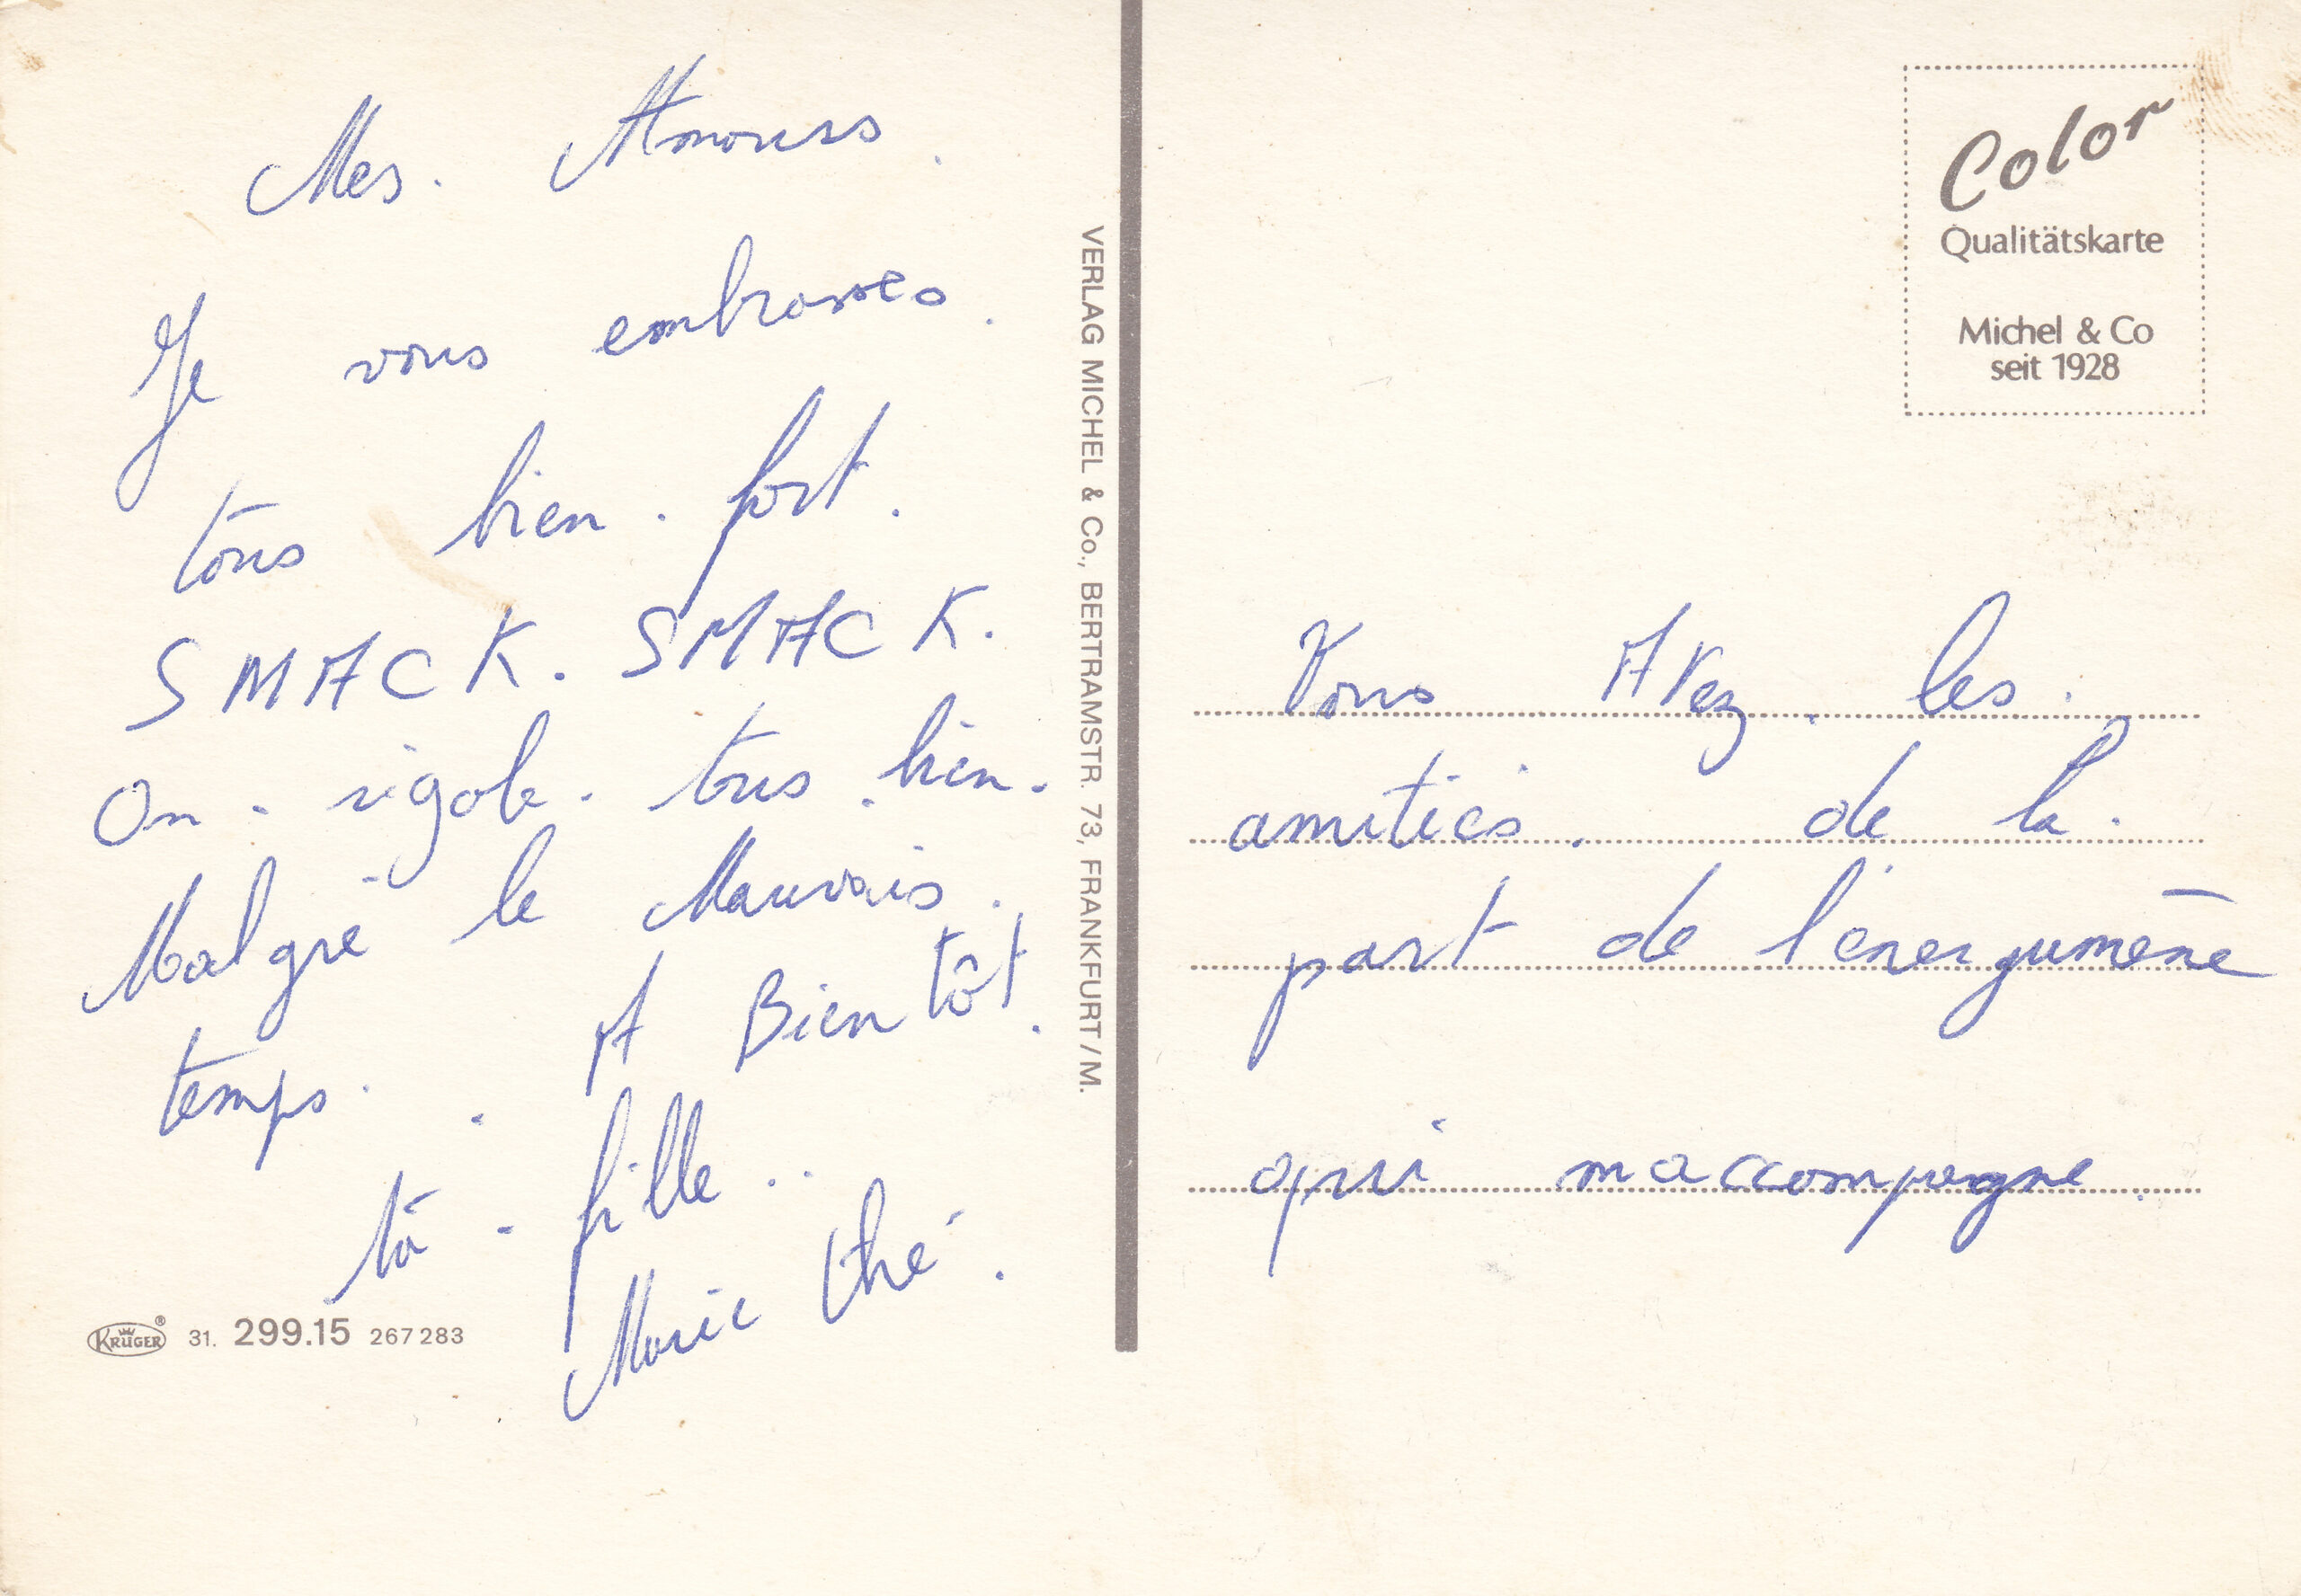 Mes. Amours.
Je vous embrasses.
tous bien. fort.
SMACK. SMACK.
On. rigole. tres bien.
Malgré le Mauvais.
temps. A Bientôt.
ta. fille..
Marie thé.
KRÜGER® 31. 299.15 267 283
VERLAG MICHEL & Co., BERTRAMSTR. 73, FRANKFURT/M.
Color
Qualitätskarte
Michel & Co
seit 1928
Vous AVez. les.
amitiés. de la.
part de l'énergumène
qui maccompagne.